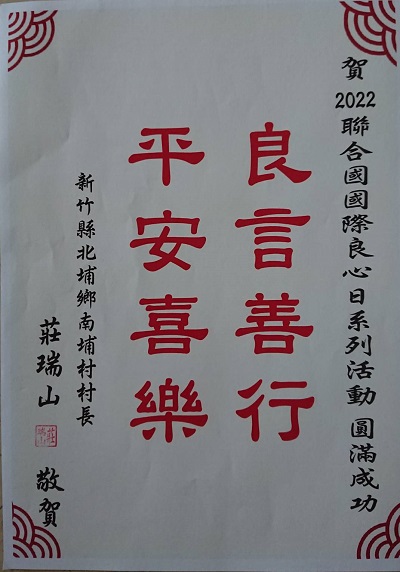 賀 2022聯合國國際良心日系列活動 圓滿成功
良言善行
平安喜樂
新竹縣北埔鄉南埔村村長
莊瑞山 莊瑞山 敬賀